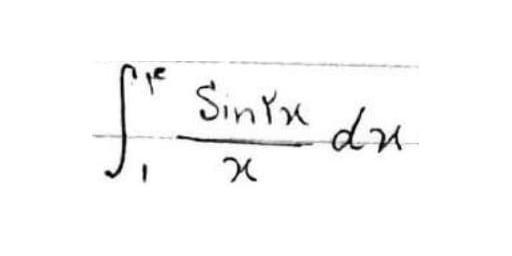 ∫₁^۴ Sin۲x / x dx